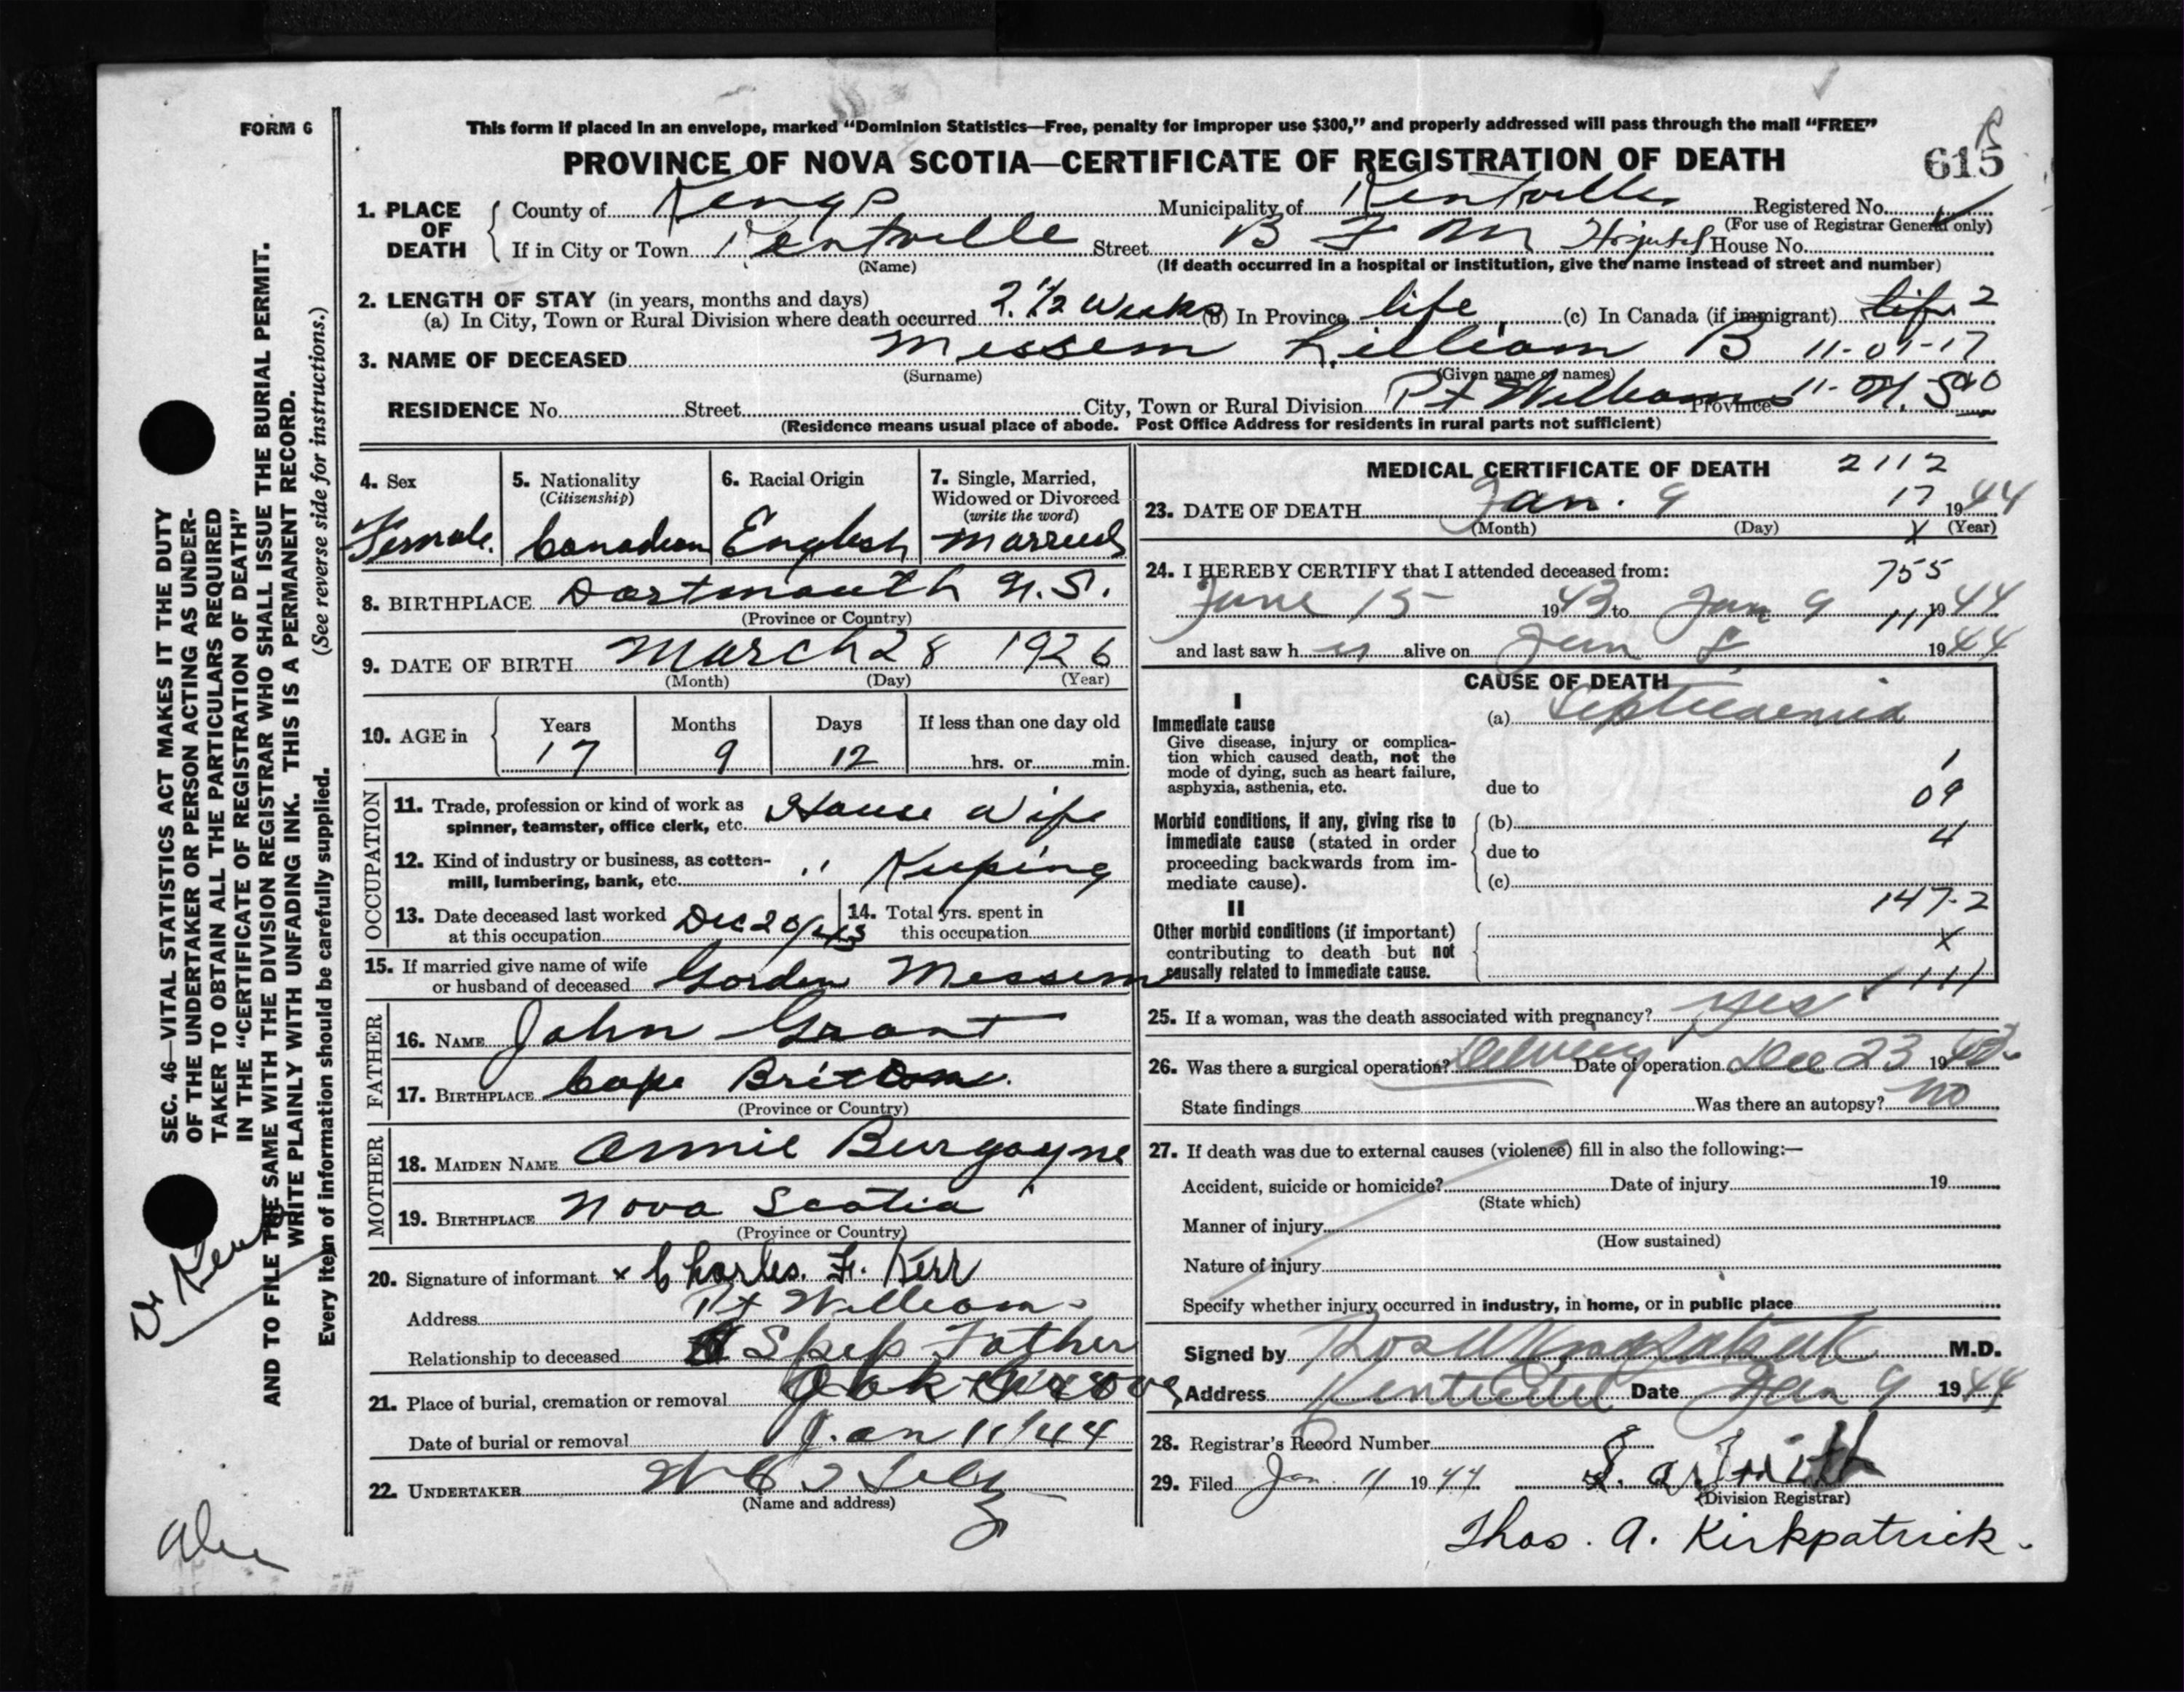 FORM 6
This form if placed in an envelope, marked "Dominion Statistics—Free, penalty for improper use $300," and properly addressed will pass through the mail "FREE"
PROVINCE OF NOVA SCOTIA—CERTIFICATE OF REGISTRATION OF DEATH
615
1. PLACE OF DEATH
County of Kings Municipality of Kentville Registered No.
(For use of Registrar General only)
If in City or Town Kentville Street B F M Hospital House No.
(Name) (If death occurred in a hospital or institution, give the name instead of street and number)
2. LENGTH OF STAY (in years, months and days)
(a) In City, Town or Rural Division where death occurred 2 1/2 weeks (b) In Province life (c) In Canada (if immigrant) life 2
3. NAME OF DECEASED Messem Lilliam B 11-01-17
(Surname) (Given name or names)
RESIDENCE No. Street City, Town or Rural Division Pt Williams Province N.S.
(Residence means usual place of abode. Post Office Address for residents in rural parts not sufficient)
4. Sex
Female.
5. Nationality
(Citizenship)
Canadian
6. Racial Origin
English
7. Single, Married,
Widowed or Divorced
(write the word)
Married
8. BIRTHPLACE Dartmouth N.S.
(Province or Country)
9. DATE OF BIRTH March 28 1926
(Month) (Day) (Year)
10. AGE in
Years Months Days If less than one day old
17 9 12 hrs. or min.
OCCUPATION
11. Trade, profession or kind of work as
spinner, teamster, office clerk, etc. House Wife
12. Kind of industry or business, as cotton-
mill, lumbering, bank, etc. " Keeping
13. Date deceased last worked
at this occupation Dec 20/43
14. Total yrs. spent in
this occupation
15. If married give name of wife
or husband of deceased Gorden Messem
FATHER
16. NAME John Grant
17. BIRTHPLACE Cape Britton.
(Province or Country)
MOTHER
18. MAIDEN NAME Annie Burgoyne
19. BIRTHPLACE Nova Scotia
(Province or Country)
20. Signature of informant x Charles. F. Kerr
Address Pt Williams
Relationship to deceased Step Father
21. Place of burial, cremation or removal Oak Grove
Date of burial or removal Jan 11/44
22. UNDERTAKER
(Name and address)
MEDICAL CERTIFICATE OF DEATH 2112
23. DATE OF DEATH Jan. 9 17 1944
(Month) (Day) (Year)
24. I HEREBY CERTIFY that I attended deceased from:
755
June 15 1943 to Jan 9 1944
and last saw her alive on Jan 8 1944
CAUSE OF DEATH
I
Immediate cause
Give disease, injury or complica-
tion which caused death, not the
mode of dying, such as heart failure,
asphyxia, asthenia, etc.
(a) Septicaemia
1
due to
09
Morbid conditions, if any, giving rise to
immediate cause (stated in order
proceeding backwards from im-
mediate cause).
(b)
4
due to
(c)
147-2
II
Other morbid conditions (if important)
contributing to death but not
causally related to immediate cause.
x
25. If a woman, was the death associated with pregnancy? Yes
26. Was there a surgical operation? Delivery Date of operation Dec 23 1943
State findings Was there an autopsy? No
27. If death was due to external causes (violence) fill in also the following:—
Accident, suicide or homicide? Date of injury 19
(State which)
Manner of injury
(How sustained)
Nature of injury
Specify whether injury occurred in industry, in home, or in public place
Signed by M.D.
Address Kentville Date Jan 9 1944
28. Registrar's Record Number
29. Filed Jan. 11 1944
(Division Registrar)
Thos. A. Kirkpatrick.
SEC. 46—VITAL STATISTICS ACT MAKES IT THE DUTY
OF THE UNDERTAKER OR PERSON ACTING AS UNDER-
TAKER TO OBTAIN ALL THE PARTICULARS REQUIRED
IN THE "CERTIFICATE OF REGISTRATION OF DEATH"
AND TO FILE THE SAME WITH THE DIVISION REGISTRAR WHO SHALL ISSUE THE BURIAL PERMIT.
WRITE PLAINLY WITH UNFADING INK. THIS IS A PERMANENT RECORD.
Every item of information should be carefully supplied. (See reverse side for instructions.)